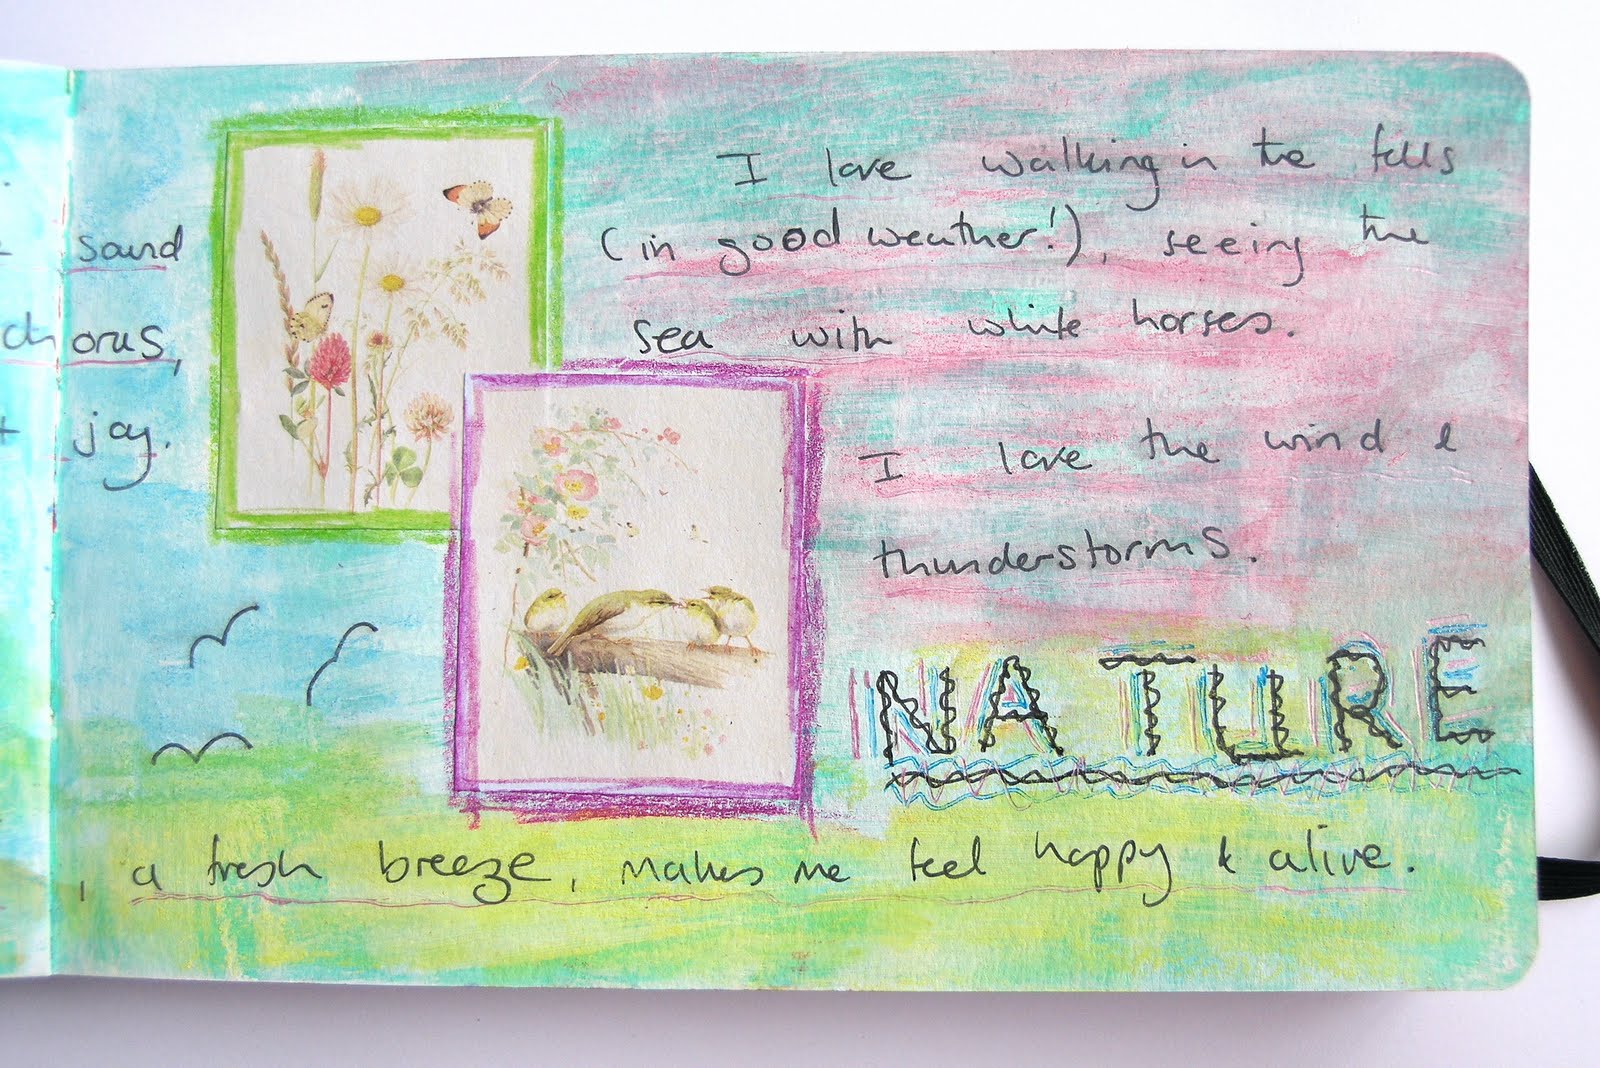 sound
chorus,
joy.
I love walking in the fells
(in good weather!), seeing the
sea with white horses.
I love the wind &
thunderstorms.
NATURE
, a fresh breeze, makes me feel happy & alive.